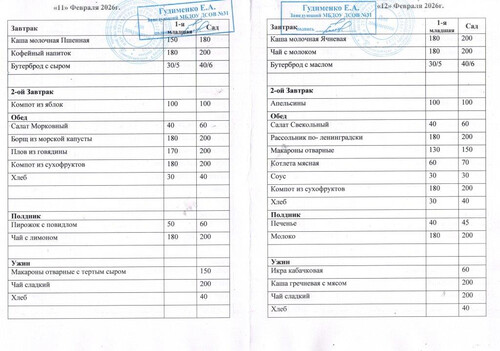 «11» Февраля 2026г.
Гудименко Е.А.
Заведующий МБДОУ ДСОВ №31
Завтрак 1-я младшая Сад
Каша молочная Пшенная 150 180
Кофейный напиток 180 200
Бутерброд с сыром 30/5 40/6
2-ой Завтрак
Компот из яблок 100 100
Обед
Салат Морковный 40 60
Борщ из морской капусты 180 200
Плов из говядины 170 200
Компот из сухофруктов 180 200
Хлеб 30 40
Полдник
Пирожок с повидлом 50 60
Чай с лимоном 180 200
Ужин
Макароны отварные с тертым сыром 150
Чай сладкий 200
Хлеб 40
«12» Февраля 2026г.
Гудименко Е.А.
Заведующий МБДОУ ДСОВ №31
Завтрак 1-я младшая Сад
Каша молочная Ячневая 180 200
Чай с молоком 180 200
Бутерброд с маслом 30/5 40/6
2-ой Завтрак
Апельсины 100 100
Обед
Салат Свекольный 40 60
Рассольник по- ленинградски 180 200
Макароны отварные 130 150
Котлета мясная 60 70
Соус 30 30
Компот из сухофруктов 180 200
Хлеб 30 40
Полдник
Печенье 40 45
Молоко 180 200
Ужин
Икра кабачковая 60
Каша гречневая с мясом 200
Чай сладкий 200
Хлеб 40